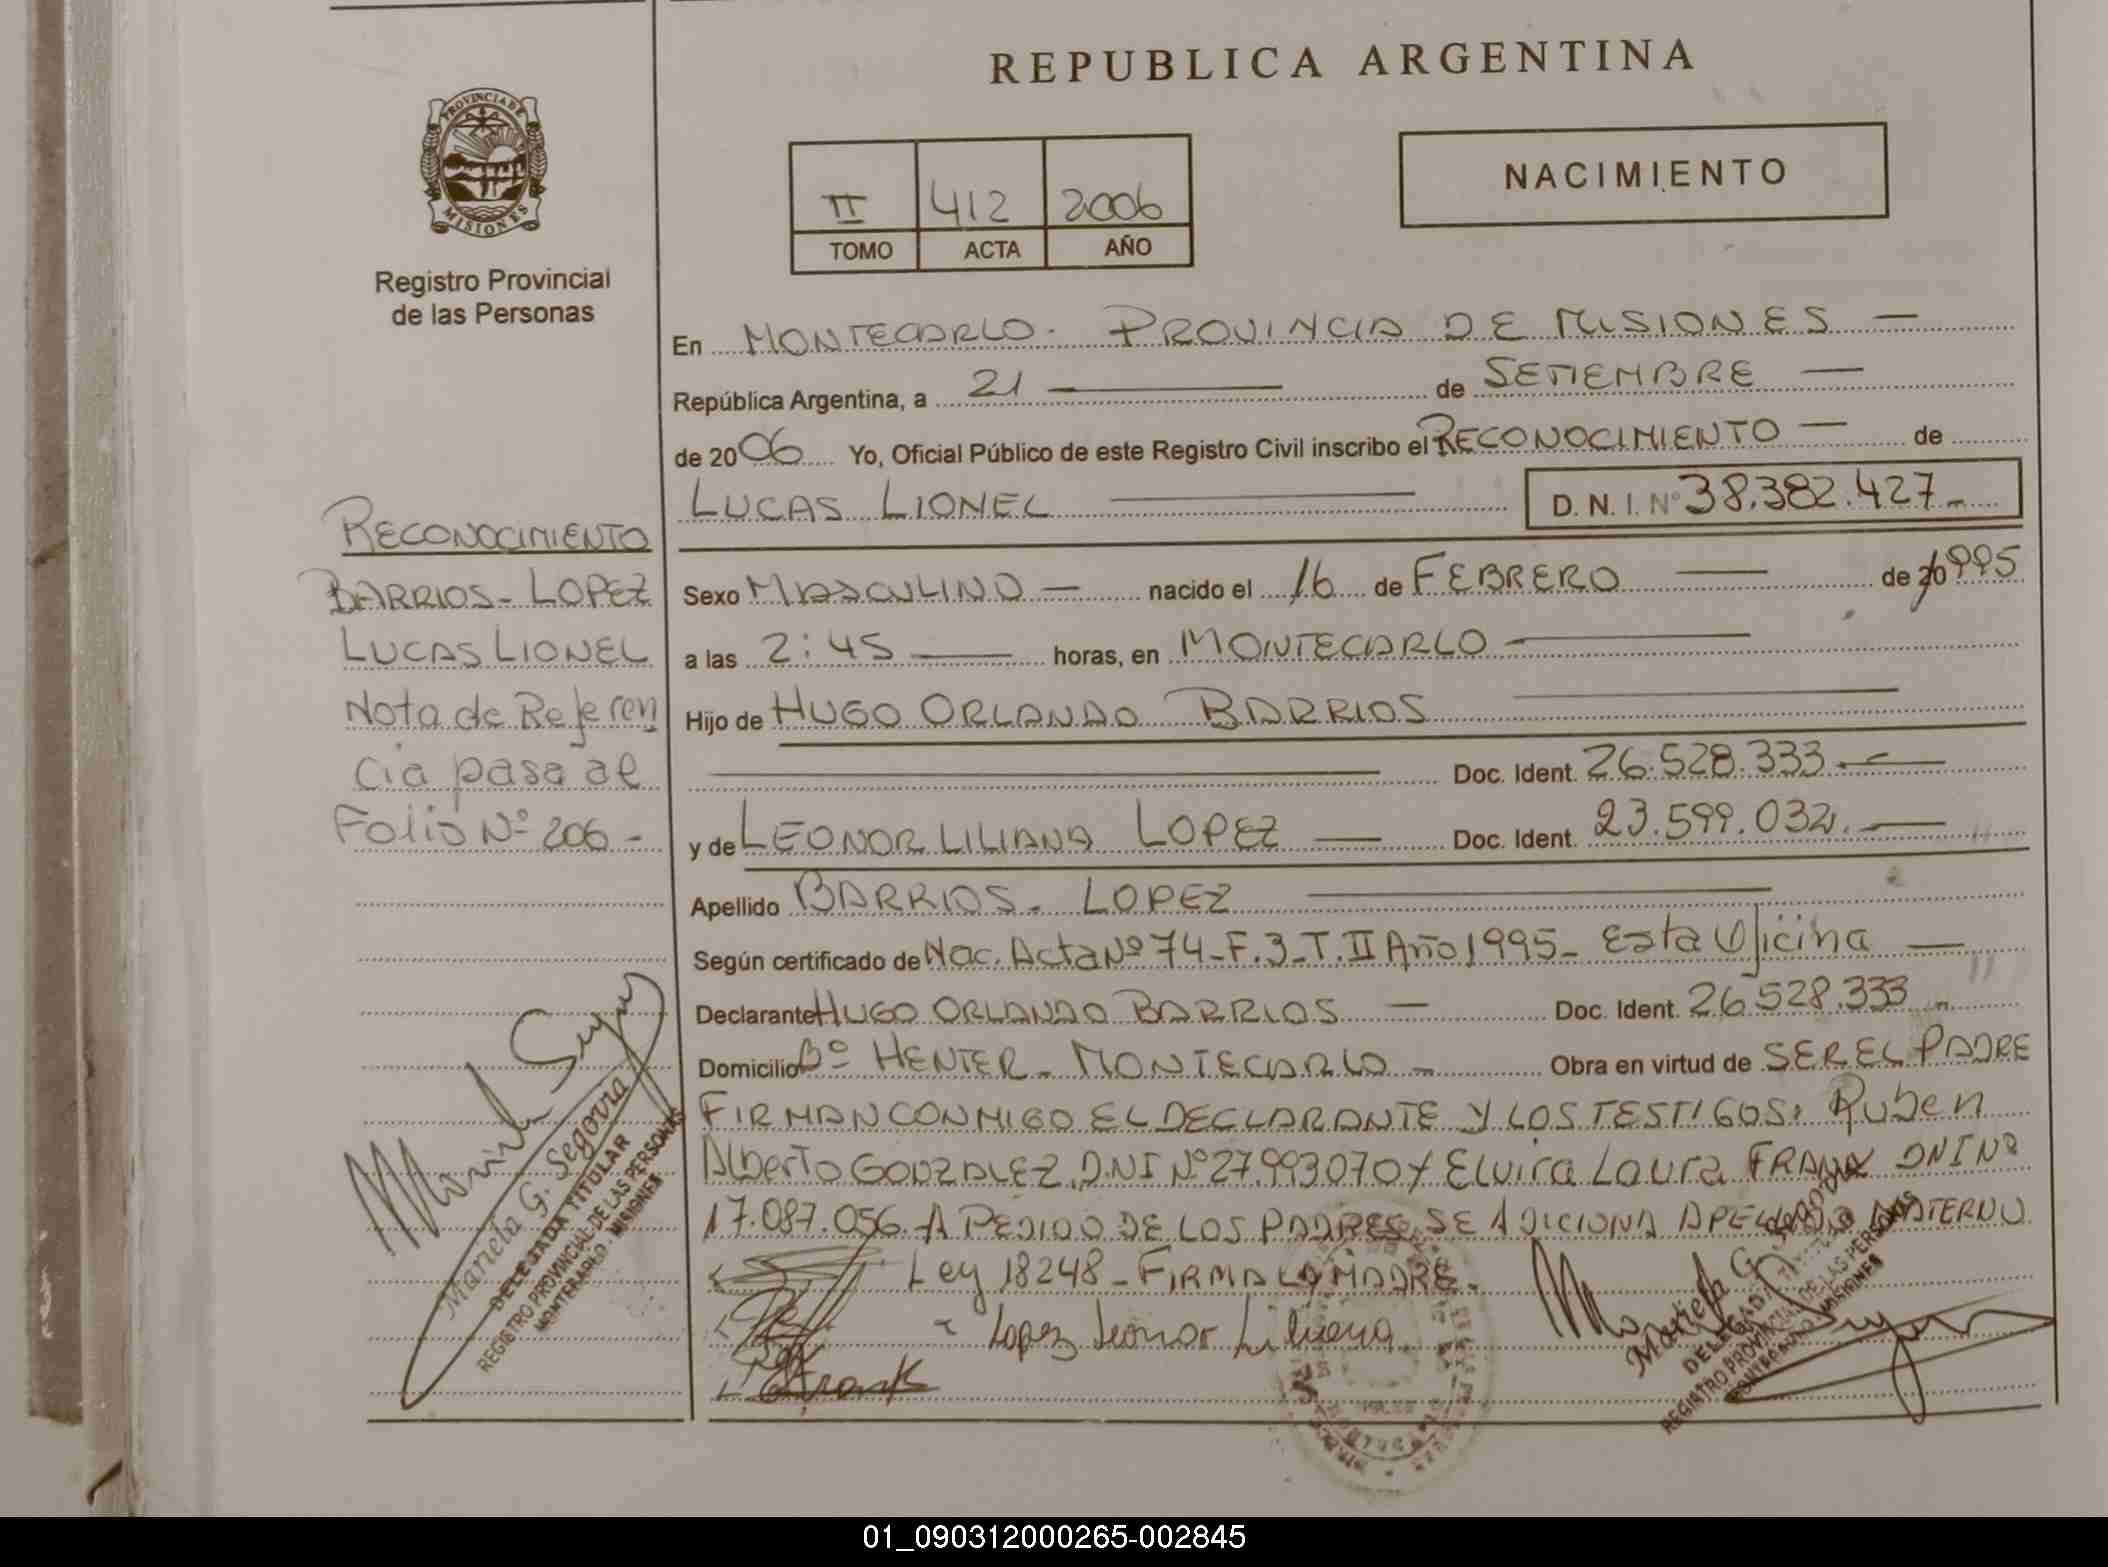 REPUBLICA ARGENTINA
PROVINCIA DE
MISIONES
Registro Provincial
de las Personas
II 412 2006
TOMO ACTA AÑO
NACIMIENTO
En MONTECARLO. PROVINCIA DE MISIONES
República Argentina, a 21 de SETIEMBRE
de 2006 Yo, Oficial Público de este Registro Civil inscribo el RECONOCIMIENTO de
LUCAS LIONEL D. N. I. Nº 38.382.427
Sexo MASCULINO nacido el 16 de FEBRERO de 1995
a las 2:45 horas, en MONTECARLO
Hijo de HUGO ORLANDO BARRIOS
Doc. Ident. 26.528.333
y de LEONOR LILIANA LOPEZ Doc. Ident. 23.599.032
Apellido BARRIOS - LOPEZ
Según certificado de Nac. Acta Nº 74 - F. 3 - T. II Año 1995 - Esta Oficina
Declarante HUGO ORLANDO BARRIOS Doc. Ident. 26.528.333
Domicilio Bº HENTER - MONTECARLO Obra en virtud de SER EL PADRE
FIRMAN CONMIGO EL DECLARANTE Y LOS TESTIGOS: Ruben
Alberto GONZALEZ DNI Nº 27.993.070 y Elvira Laura FRANK DNI Nº
17.087.056. A PEDIDO DE LOS PADRES SE ADICIONA APELLIDO MATERNO
Ley 18248 - FIRMA LA MADRE.
Lopez Leonor Liliana
Frank
RECONOCIMIENTO
BARRIOS - LOPEZ
LUCAS LIONEL
Nota de Referen
cia pasa al
Folio Nº 206 -
Mariela G. Segorra
DELEGADA TITULAR
REGISTRO PROVINCIAL DE LAS PERSONAS
MONTECARLO - MISIONES
Mariela G. Segorra
DELEGADA TITULAR
REGISTRO PROVINCIAL DE LAS PERSONAS
MONTECARLO - MISIONES
01_090312000265-002845